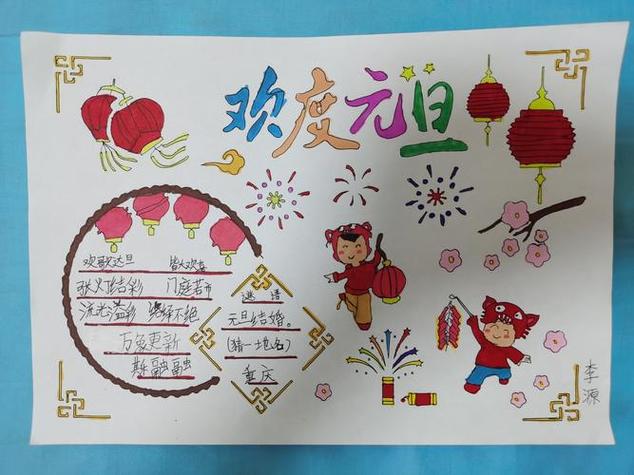 欢度元旦
欢歌达旦 皆大欢喜
张灯结彩 门庭若市
流光溢彩 络绎不绝
万象更新
其乐融融
谜语
元旦结婚。
(猜一地名)
重庆
李源